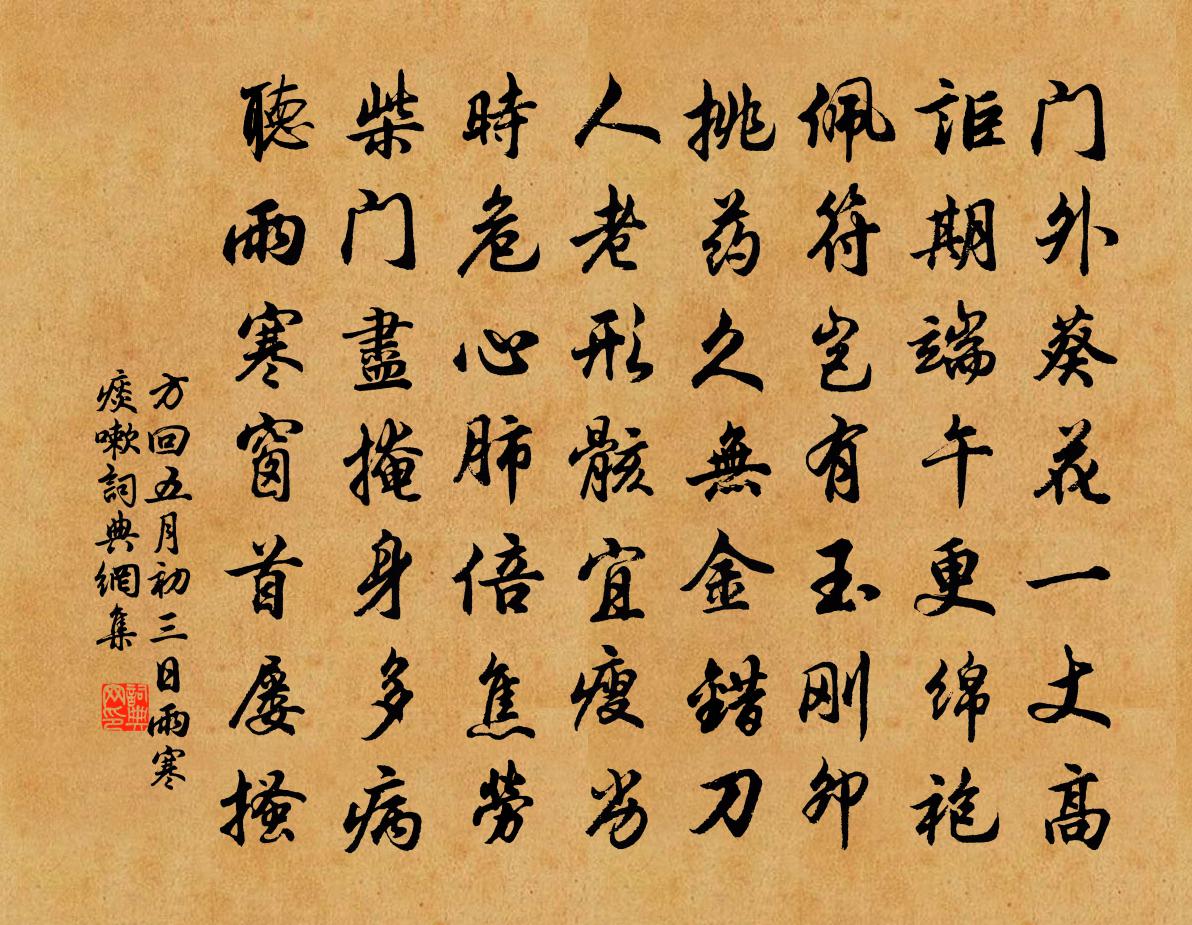 门外葵花一丈高
詎期端午更绵袍
佩符岂有玉刚卯
挑药久無金錯刀
人老形骸宜瘦劣
時危心肺倍焦勞
柴门盡掩身多病
聴雨寒窗首屡搔
方回五月初三日雨寒
痰嗽詞典網集
詞典网印